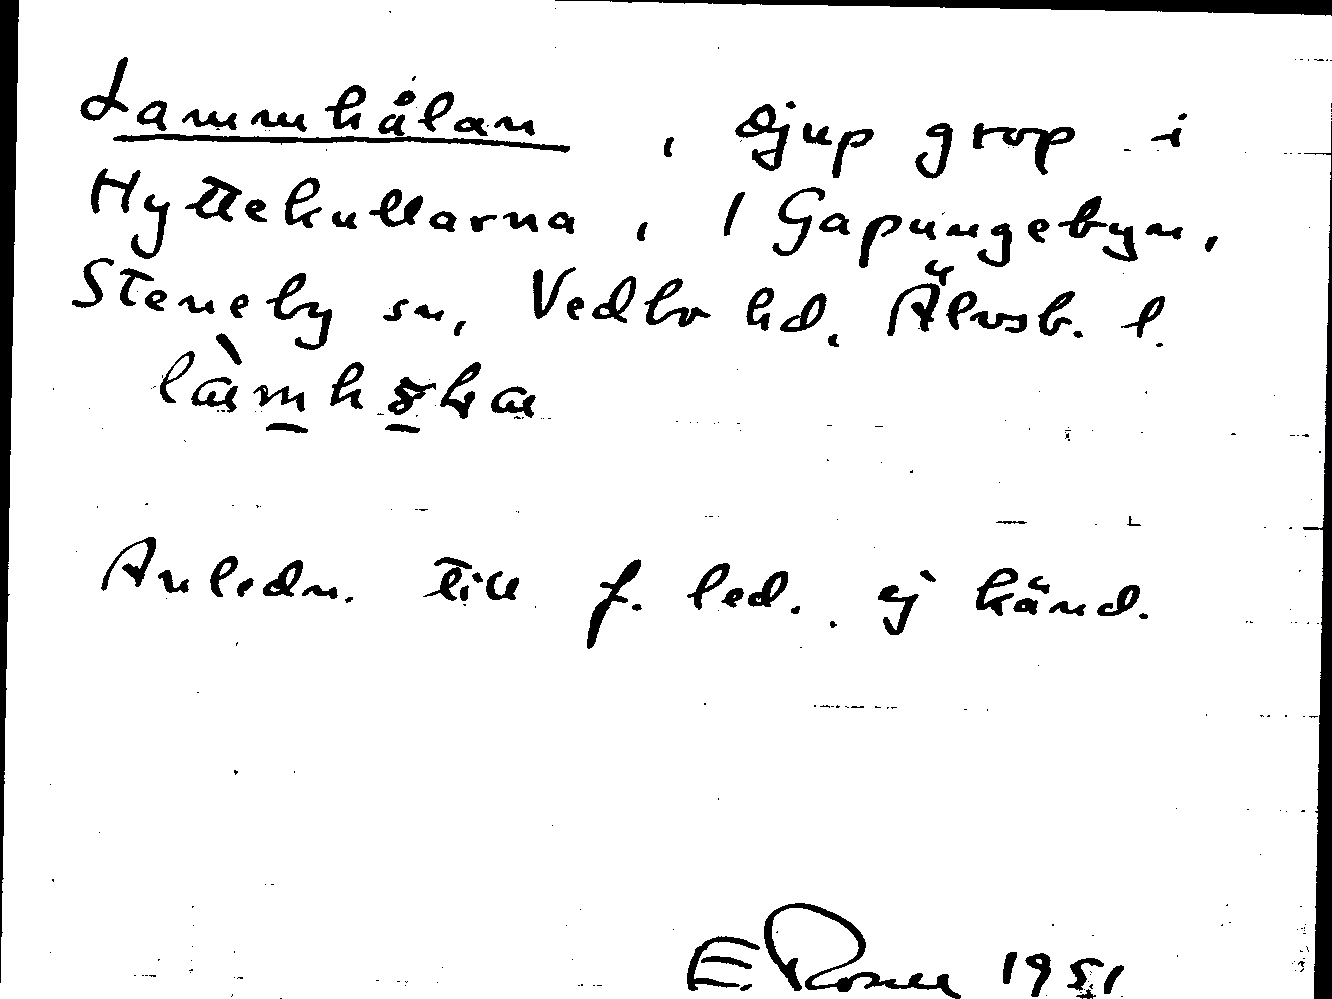 Lammhålan, djup grop i
Hyttekullarna, 1 Gapungebyn,
Steneby sn, Vedbo hd. Älvsb. l.
Anledn. till f. led. ej känd.
E. Rosell 1951